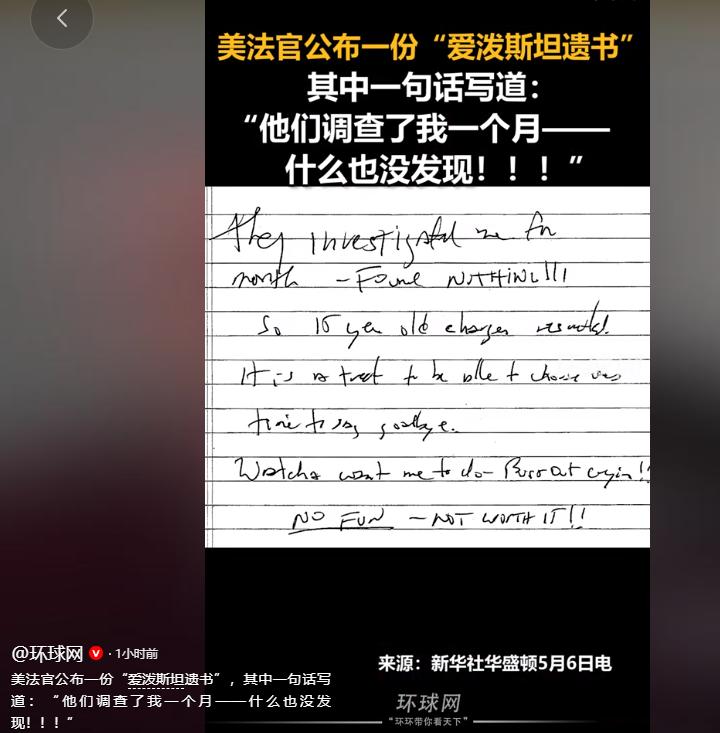 美法官公布一份“爱泼斯坦遗书”
其中一句话写道：
“他们调查了我一个月——
什么也没发现！！！”
They investigated me for
month – Found NOTHING!!!
So 15 year old charges resulted.
It is a treat to be able to choose
time to say goodbye.
Watcha want me to do – Burst out cryin!!
NO FUN – NOT WORTH IT!!
@环球网 · 1小时前
美法官公布一份“爱泼斯坦遗书”，其中一句话写
道：“他们调查了我一个月——什么也没发
现！！！”
来源：新华社华盛顿5月6日电
环球网
“环环带你看天下”